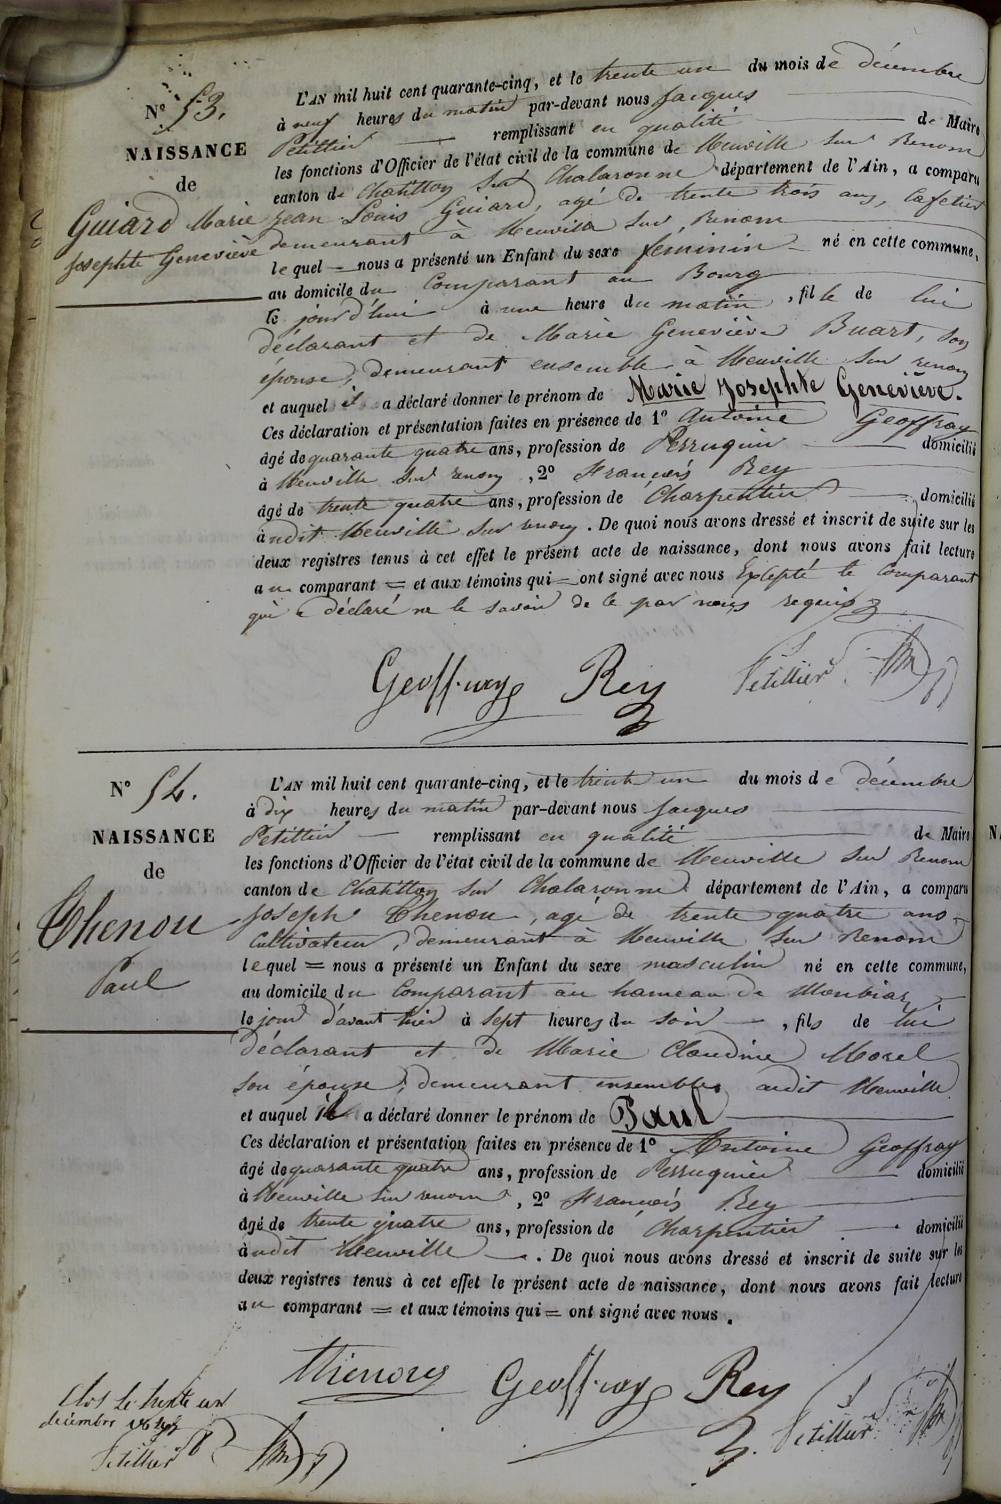 N° 53.
NAISSANCE
de
Guiard Marie
Josephte Geneviève
L'AN mil huit cent quarante-cinq, et le trente un du mois de décembre
à neuf heures du matin par-devant nous Jacques
Petillier remplissant en qualité de Maire
les fonctions d'Officier de l'état civil de la commune de Neuville sur Renom
canton de Chatillon sur Chalaronne département de l'Ain, a comparu
Jean Louis Guiard, agé de trente trois ans, Cafetier
demeurant à Neuville sur Renom
lequel = nous a présenté un Enfant du sexe feminin né en cette commune,
au domicile du Comparant au Bourg
le jour d'hui à une heure du matin, fille de lui
déclarant et de Marie Geneviève Buart, son
épouse, demeurant ensemble à Neuville sur renom
et auquel il a déclaré donner le prénom de Marie Josephte Geneviève.
Ces déclaration et présentation faites en présence de 1° Antoine Geoffray
âgé de quarante quatre ans, profession de Perruquier domicilié
à Neuville sur renom, 2° François Rey
âgé de trente quatre ans, profession de Charpentier domicilié
audit Neuville sur renom. De quoi nous avons dressé et inscrit de suite sur les
deux registres tenus à cet effet le présent acte de naissance, dont nous avons fait lecture
au comparant = et aux témoins qui = ont signé avec nous Excepté le Comparant
qui a déclaré ne le savoir de ce par nous requis
Geoffray Rey Petillier
N° 54.
NAISSANCE
de
Thenou
Paul
L'AN mil huit cent quarante-cinq, et le trente un du mois de décembre
à dix heures du matin par-devant nous Jacques
Petillier remplissant en qualité de Maire
les fonctions d'Officier de l'état civil de la commune de Neuville sur Renom
canton de Chatillon sur Chalaronne département de l'Ain, a comparu
Joseph Thenou, agé de trente quatre ans
Cultivateur, demeurant à Neuville sur Renom
lequel = nous a présenté un Enfant du sexe masculin né en cette commune,
au domicile du Comparant au hameau de Monbiar
le jour d'avant hier à sept heures du soir, fils de lui
déclarant et de Marie Claudine Morel
son épouse, demeurant ensemble audit Neuville
et auquel il a déclaré donner le prénom de Paul
Ces déclaration et présentation faites en présence de 1° Antoine Geoffray
âgé de quarante quatre ans, profession de Perruquier domicilié
à Neuville sur renom, 2° François Rey
âgé de trente quatre ans, profession de Charpentier domicilié
audit Neuville. De quoi nous avons dressé et inscrit de suite sur les
deux registres tenus à cet effet le présent acte de naissance, dont nous avons fait lecture
au comparant = et aux témoins qui = ont signé avec nous.
Thenou Geoffray Rey Petillier
Clos le trente un
décembre 1845
Petillier